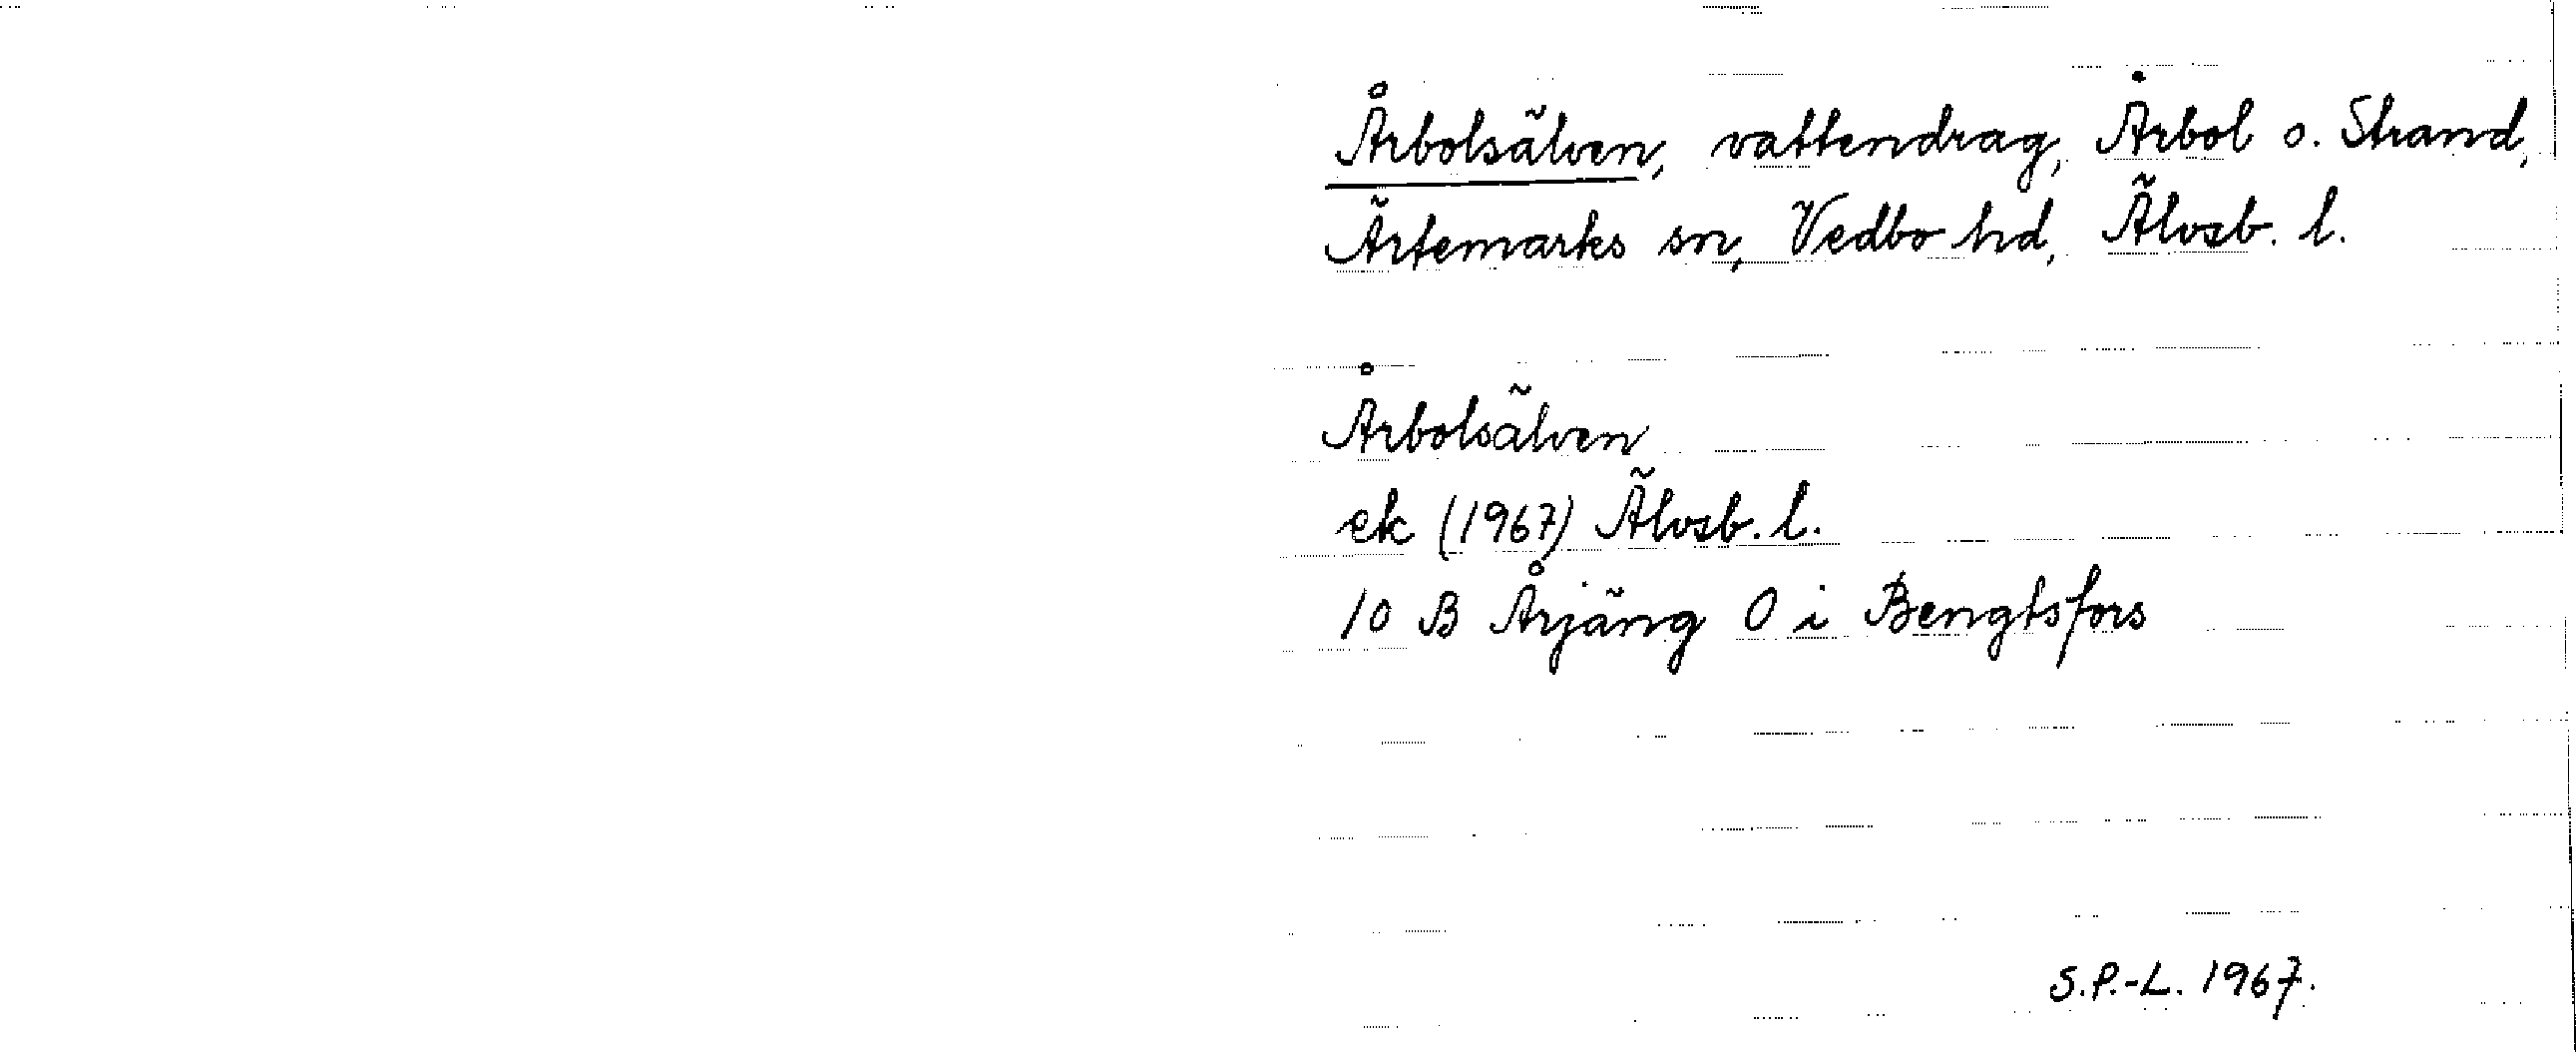 Årbolsälven, vattendrag, Årbol o. Strand,
Ärtemarks sn, Vedbo hd, Älvsb. l.
Årbolsälven
ek (1967) Älvsb. l.
10 B Årjäng O i Bengtsfors
S.P.-L. 1967.